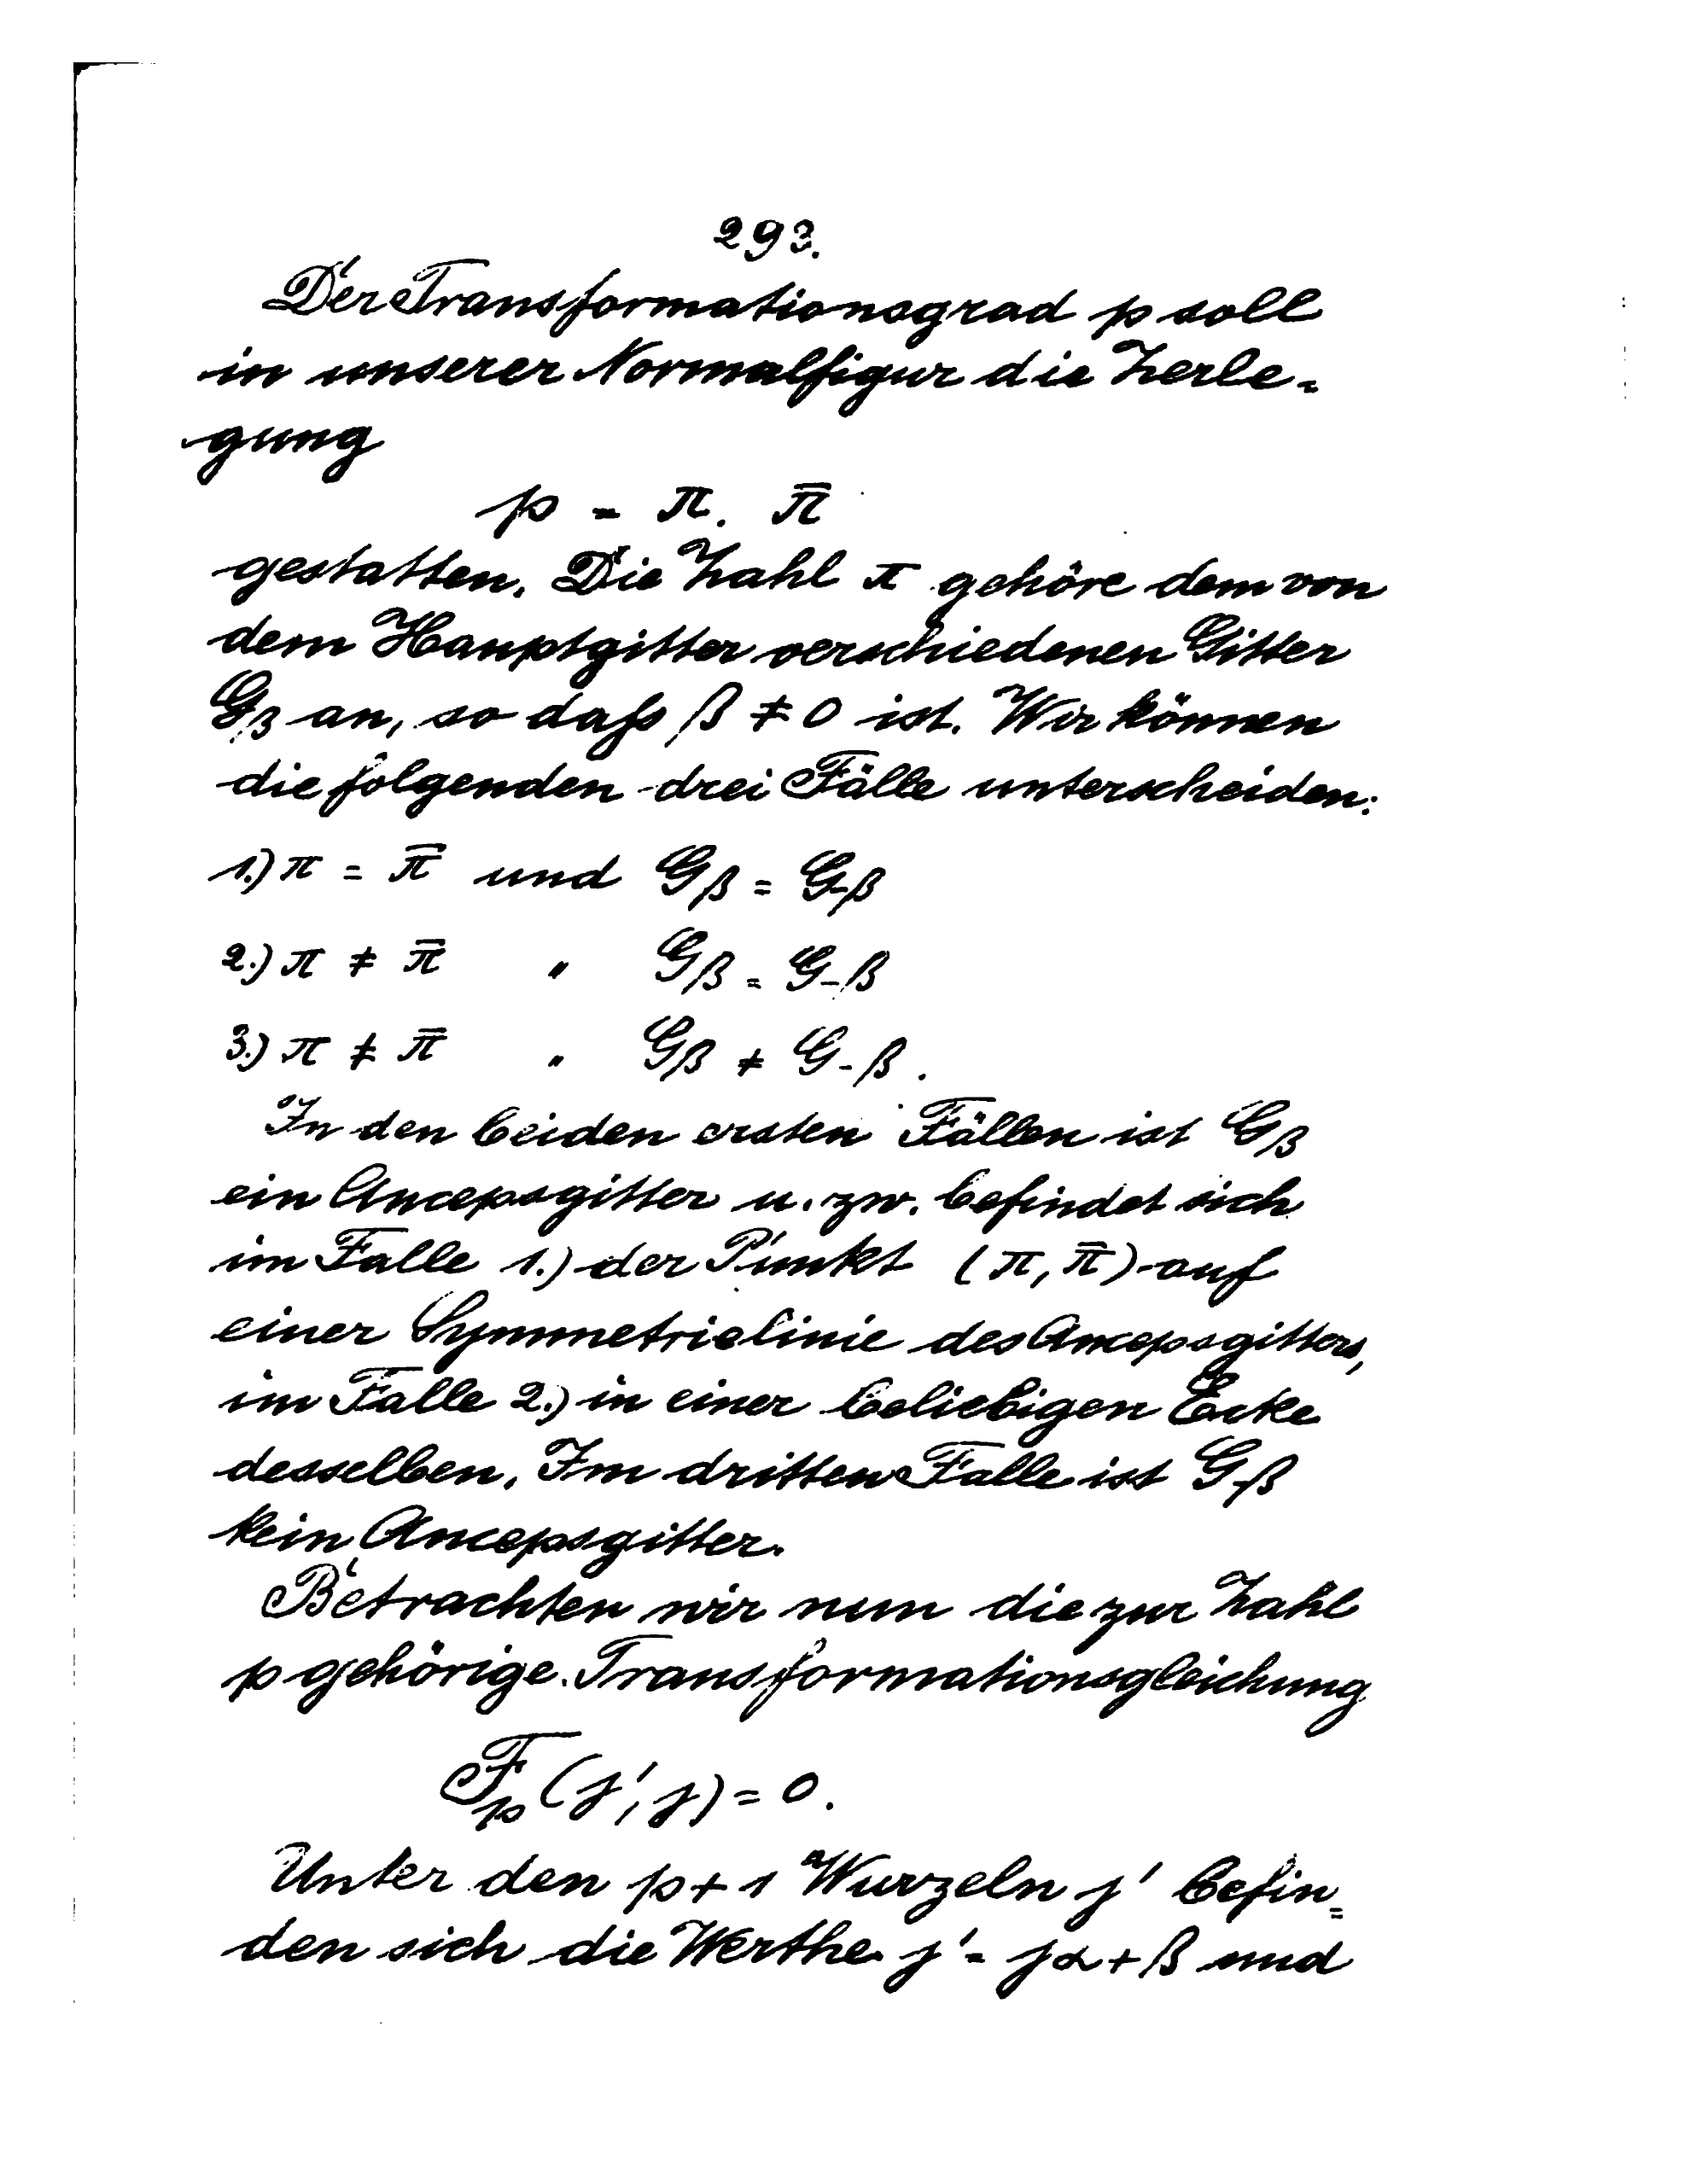 293.
Der Transformationsgrad p soll
in unserer Normalfigur die Zerle=
gung
p = π. π̄
gestatten. Die Zahl π gehöre dem von
dem Hauptgitter verschiedenen Gitter
Gβ an, so daſs β ≠ 0 ist. Wir können
die folgenden drei Fälle unterscheiden:
1.) π = π̄ und Gβ = G-β
2.) π ≠ π̄ " Gβ = G-β
3.) π ≠ π̄ " Gβ ≠ G-β.
In den beiden ersten Fällen ist Gβ
ein Ancepsgitter u. zw. befindet sich
im Falle 1.) der Punkt (π, π̄) auf
einer Symmetrielinie des Ancepsgitters,
im Falle 2.) in einer beliebigen Ecke
desselben. Im dritten Falle ist Gβ
kein Ancepsgitter.
Betrachten wir nun die zur Zahl
p gehörige Transformationsgleichung
Fp (j', j) = 0.
Unter den p+1 Wurzeln j' befin=
den sich die Werthe j' = jα+β und